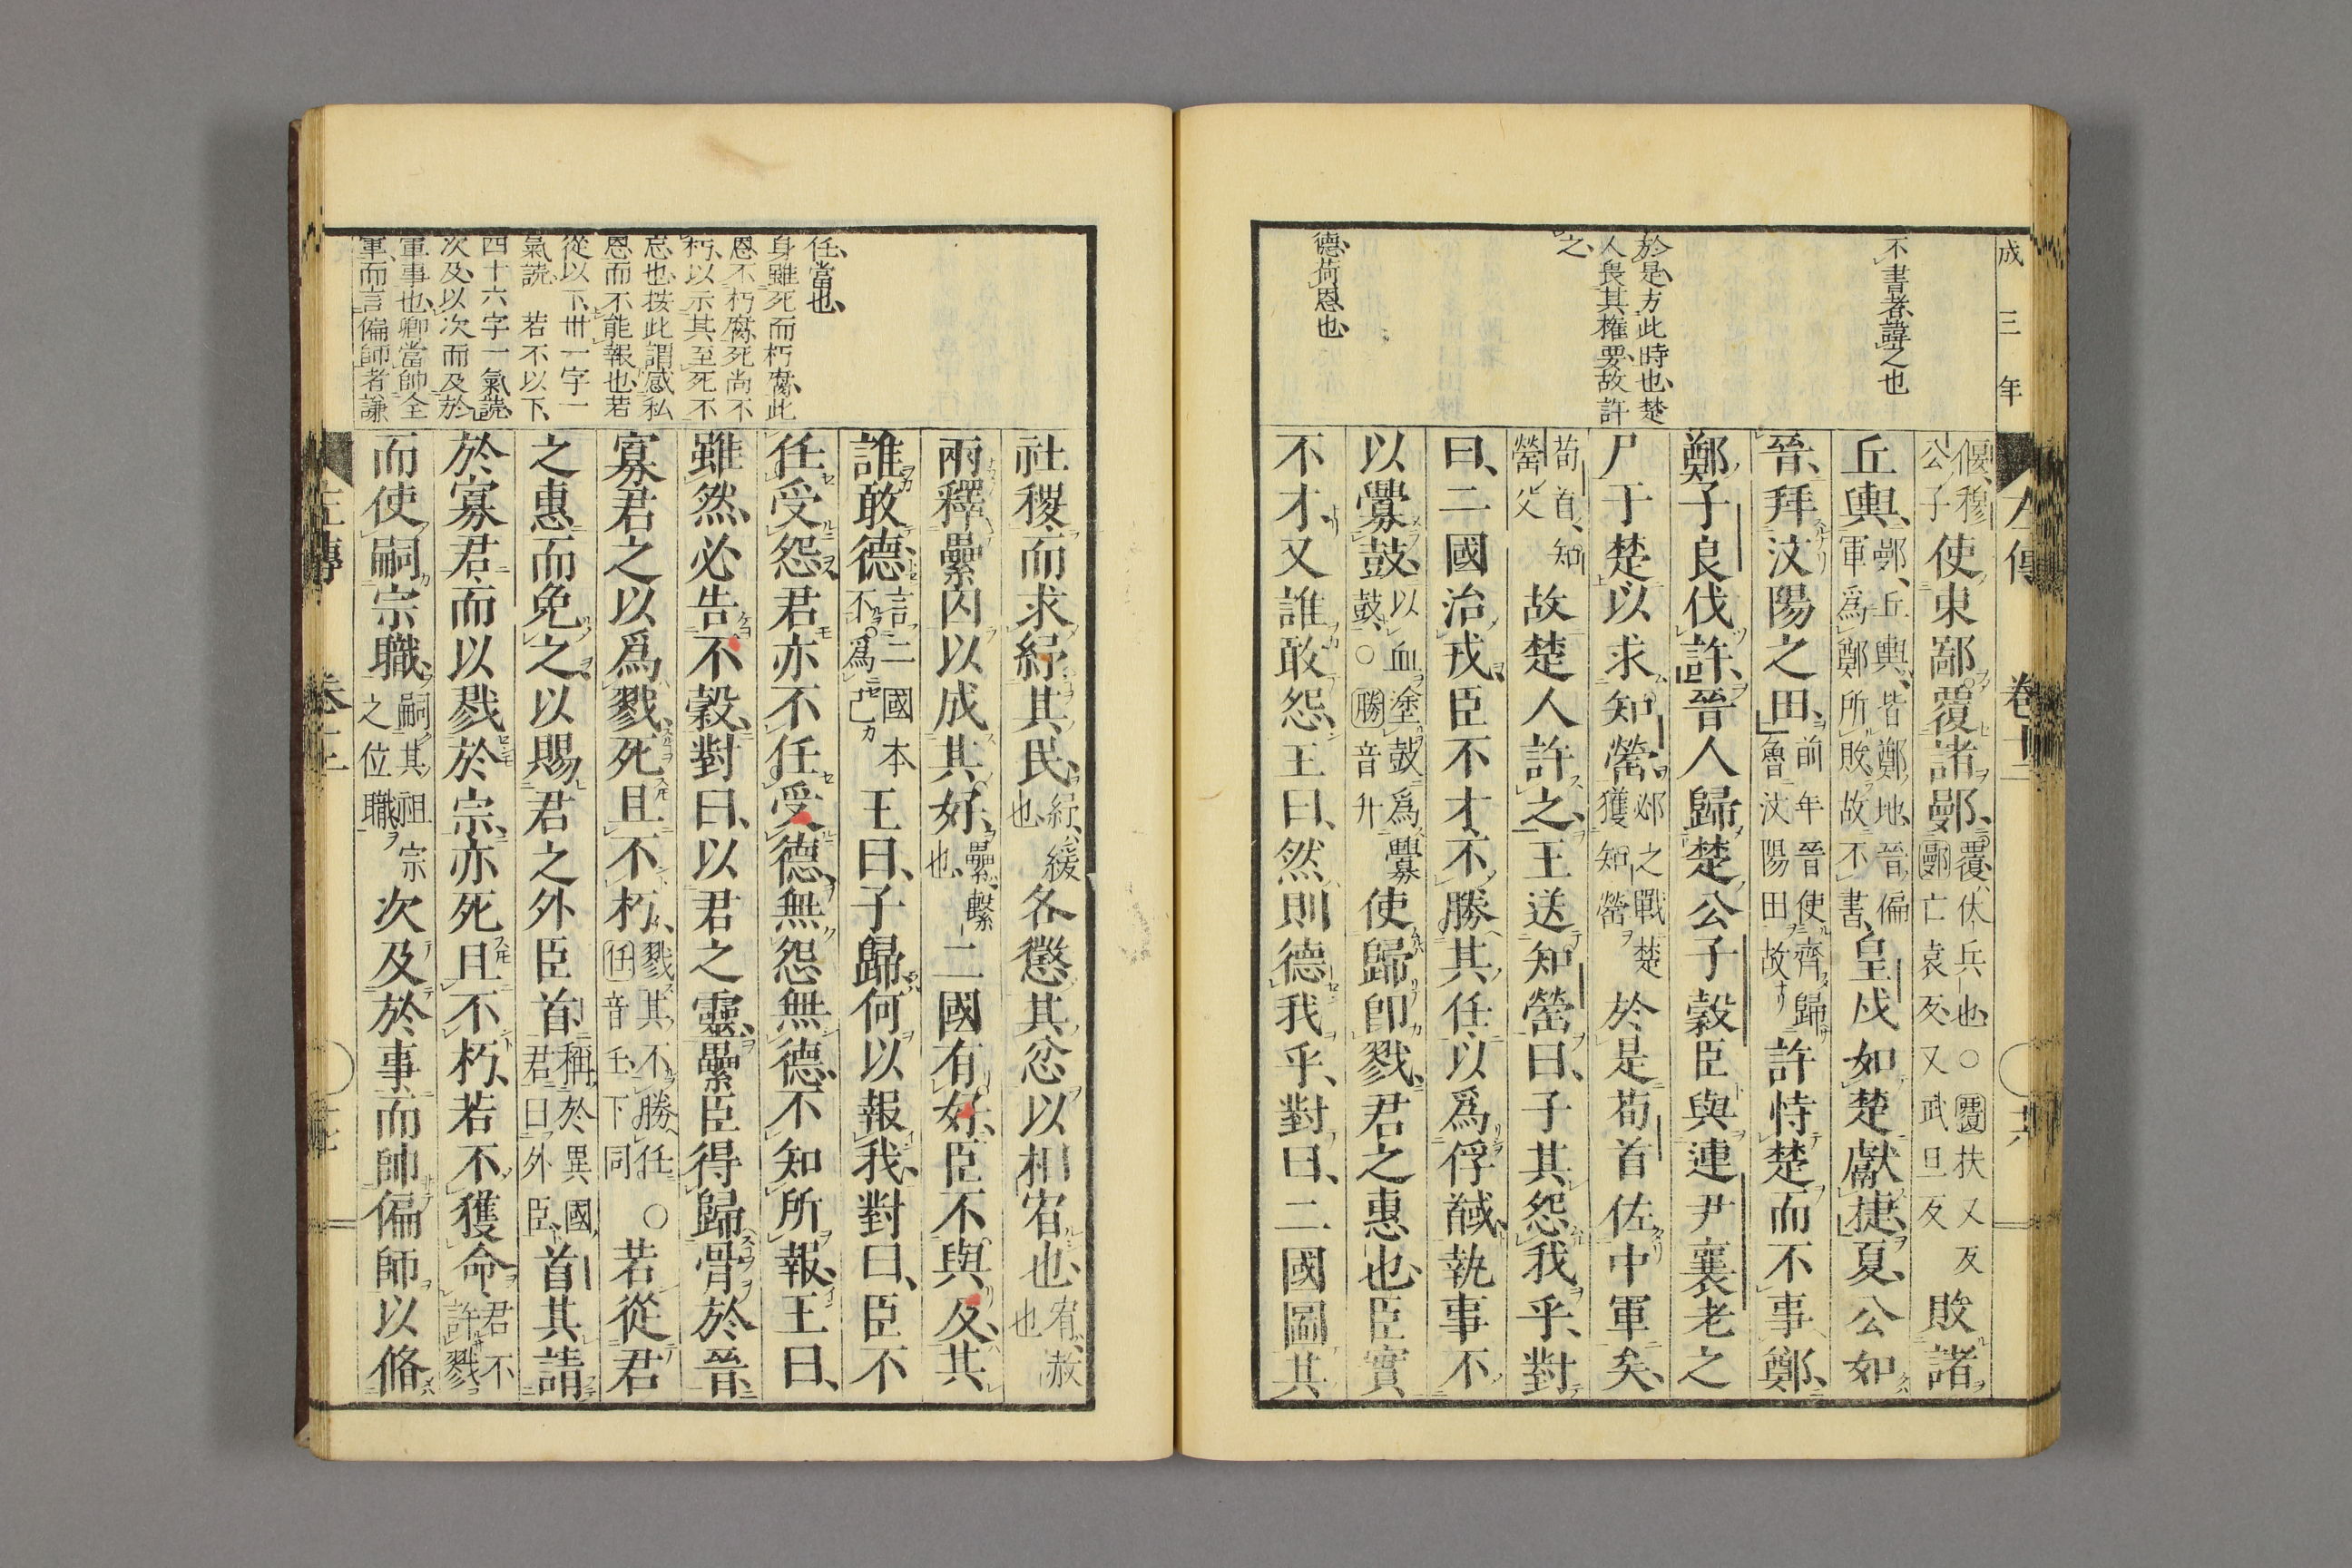 成三年
不書者、諱之也
於是、方此時也、楚
人畏其權要、故許
之、
德、荷恩也、
偃、穆
公子
使東鄙覆諸鄤、
覆、伏兵也、○覆扶又反
鄤亡袁反、又武旦反
敗諸
丘輿、
鄤、丘輿、皆鄭地、晉偏
軍爲鄭所敗、故不書、
皇戌如楚獻捷、夏、公如
晉、拜汶陽之田、
前年晉使齊歸
魯汶陽田故
許恃楚而不事鄭、
鄭子良伐許、晉人歸楚公子穀臣與連尹襄老之
尸于楚以求知罃、
邲之戰楚
獲知罃
於是荀首佐中軍矣、
荀首、知
罃父
故楚人許之、王送知罃曰、子其怨我乎、對
曰、二國治戎、臣不才、不勝其任、以爲俘馘、執事不
以釁鼓、
以血塗鼓爲釁
鼓、○勝音升
使歸卽戮、君之惠也、臣實
不才、又誰敢怨、王曰、然則德我乎、對曰、二國圖其
任、當也、
身雖死而朽腐、此
恩不朽腐、死尚不
朽、以示其至死不
忘也、按此謂感私
恩而不能報也、若
從以下、卅一字一
氣読　若不以下、
四十六字一氣読、
次及、以次而及於
軍事也、卿當帥全
軍、而言偏師者謙
社稷、而求紓其民、
紓、緩
也
各懲其忿以相宥也、
宥、赦
也
兩釋纍囚以成其好、
纍、繫
也、
二國有好、臣不與及、其
誰敢德、
言二國本
不爲己
王曰、子歸何以報我、對曰、臣不
任受怨、君亦不任受德、無怨無德、不知所報、王曰、
雖然、必告不穀、對曰、以君之靈、纍臣得歸骨於晉、
寡君之以爲戮、死且不朽、
戮其不勝任○
任音壬、下同
若從君
之惠而免之、以賜君之外臣首、
稱於異國
君曰外臣、
首其請
於寡君、而以戮於宗、亦死且不朽、若不獲命、
君不
許戮
而使嗣宗職、
嗣其祖宗
之位職
次及於事、而帥偏師以脩